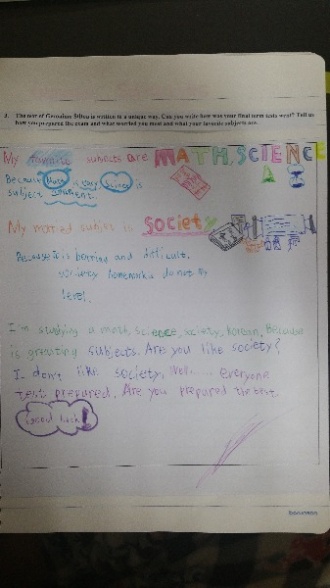 The story of Geronimo Stilton is written in a unique way. Can you write how was your final term tests went? Tell us
how you prepared the exam and what worried you most and what your favorite subjects are.
My favorite subjects are MATH, SCIENCE
Because Math is very Science is
subject
My hated subject is Society
Because it is boring and difficult.
society homeworks do not my
level.
I'm studying a math, science, society, Korean, Because
is greating subjects. Are you like society?
I don't like society. Well... everyone
test prepared. Are you prepared the test
Good luck!